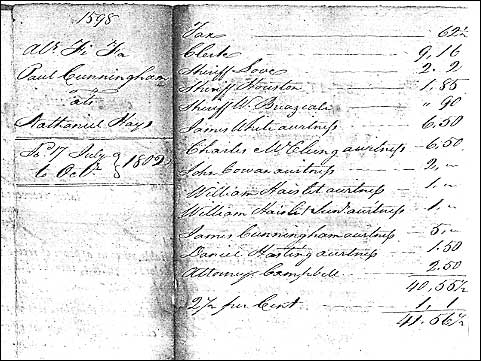 1598
Als Fi Fa
Paul Cunningham
ats
Nathaniel Hays
17 July
to Octr } 1802
Tax 62½
Clerk 9,16
Sheriff Love 2.2
Sheriff Houston 1.85
Sheriff W. Breazeale " 90
James White a witness 6.50
Charles McClung a witness 6.50
John Cowan a witness 2,"
William Haislet a witness 1."
William Haislet Senr. a witness 1."
James Cunningham a witness 5,"
Daniel a witness 1.50
Attorney Campbell 2.50
40,55½
2½ per Cent 1,1
41.56½